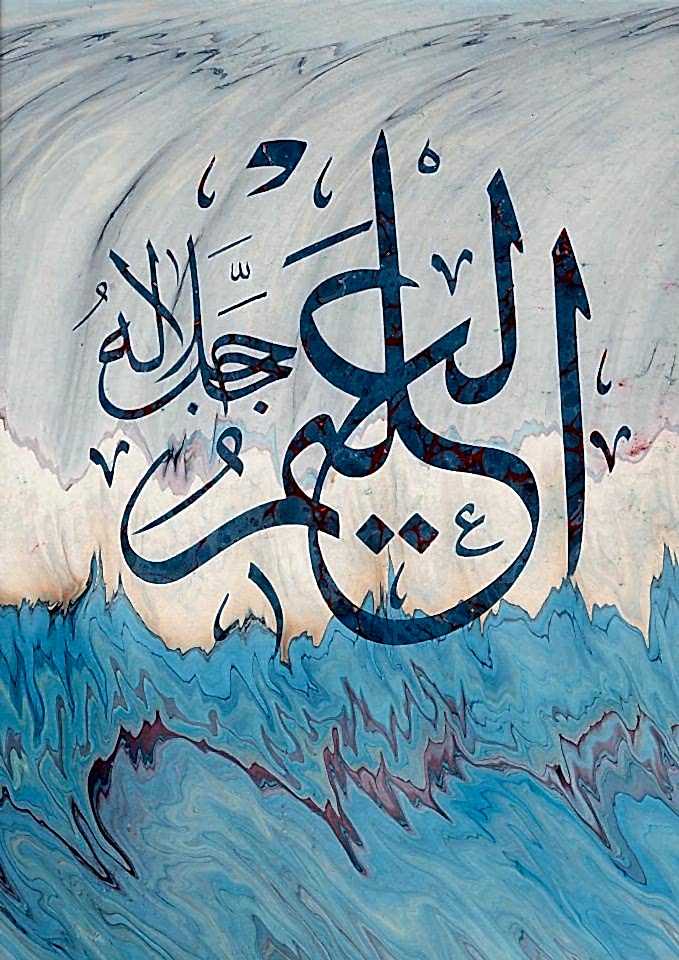 العليم جل جلاله